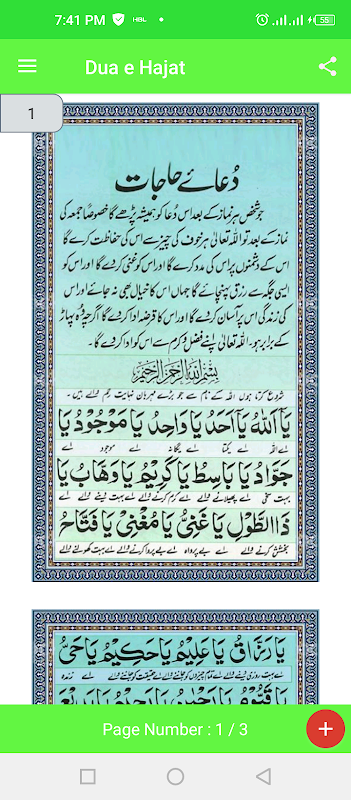 7:41 PM HBL 55
Dua e Hajat
1
دُعائے حاجات
جو شخص ہر نماز کے بعد اس دُعا کو ہمیشہ پڑھے گا خصوصاً جمعہ کی
نماز کے بعد تو اللہ تعالیٰ ہر خوف کی چیز سے اس کی حفاظت کرے گا
اس کے دشمنوں پر اس کی مدد کرے گا اور اس کو غنی کر دے گا اور اس کو
ایسی جگہ سے رزق پہنچائے گا جہاں اس کا خیال بھی نہ جائے اور اس
کی زندگی اس پر آسان کر دے گا اور اس کا قرضہ ادا کر دے گا اگرچہ وہ پہاڑ
کے برابر ہو۔ اللہ تعالیٰ اپنے فضل و کرم سے اس کو ادا کر دے گا۔
بِسْمِ اللهِ الرَّحْمٰنِ الرَّحِيْمِ
شروع کرتا ہوں اللہ کے نام سے جو بڑے مہربان نہایت رحم والے ہیں۔
يَا اَللهُ يَا اَحَدُ يَا وَاحِدُ يَا مَوْجُوْدُ يَا
اے اللہ اے یکتا اے یگانہ اے موجود اے
جَوَّادُ يَا بَاسِطُ يَا كَرِيْمُ يَا وَهَّابُ يَا
بہت سخی اے پھیلانے والے اے کرم کرنے والے اے بہت دینے والے اے
ذَا الطَّوْلِ يَا غَنِيُّ يَا مُغْنِيْ يَا فَتَّاحُ
بخشش کرنے والے اے بے پرواہ اے بے پروا کرنے والے اے بہت کھولنے والے
يَا رَزَّاقُ يَا عَلِيْمُ يَا حَكِيْمُ يَا حَيُّ
اے بہت روزی دینے والے اے تمام چیزوں کو جاننے والے اے حقیقت کو جاننے والے اے زندہ
يَا قَيُّوْمُ يَا رَحْمٰنُ يَا رَحِيْمُ يَا بَدِيْعَ
Page Number : 1 / 3